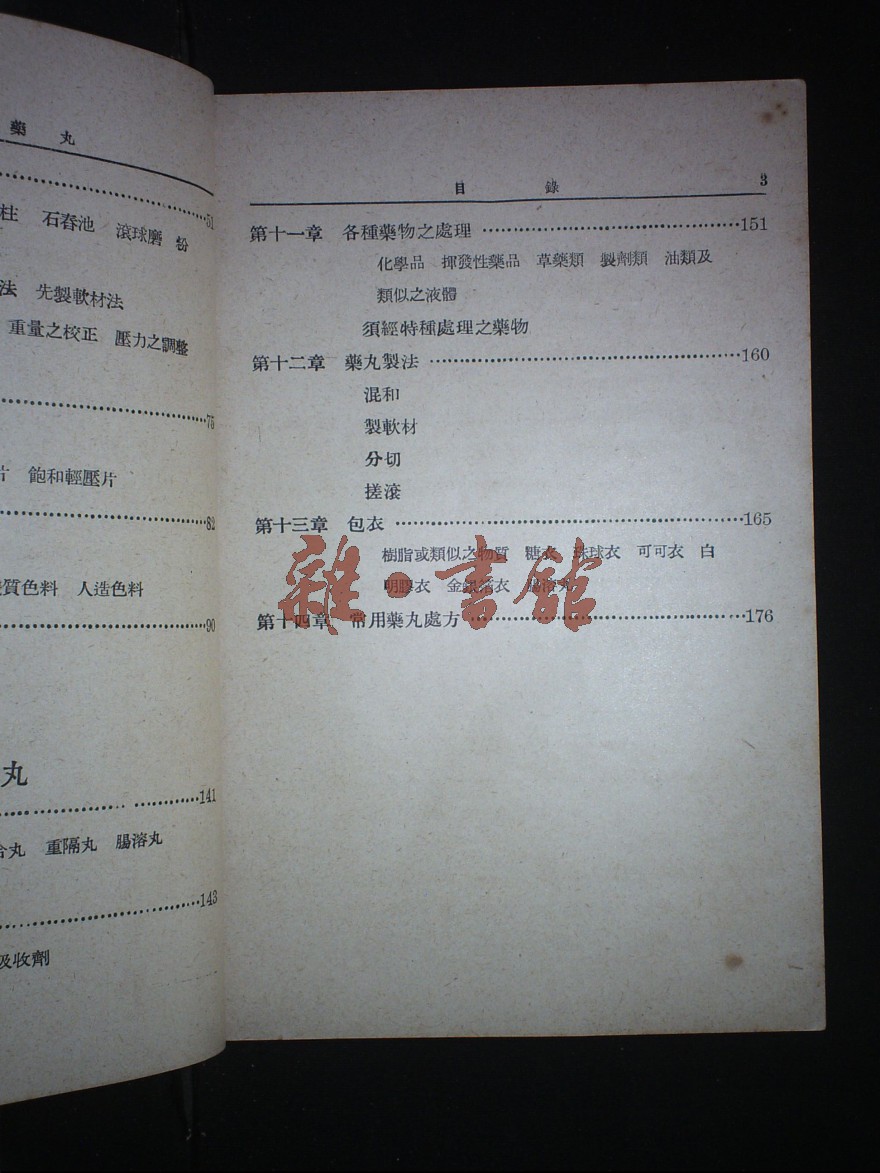 藥 丸
51
柱 石舂池 滾球磨 粉
法 先製軟材法
重量之校正 壓力之調整
75
片 飽和輕壓片
82
質色料 人造色料
90
丸
141
合丸 重隔丸 腸溶丸
143
吸收劑
目 錄 3
第十一章 各種藥物之處理 151
化學品 揮發性藥品 草藥類 製劑類 油類及
類似之液體
須經特種處理之藥物
第十二章 藥丸製法 160
混和
製軟材
分切
搓滾
第十三章 包衣 165
樹脂或類似之物質 糖衣 珠球衣 可可衣 白
明膠衣 金銀箔衣 腸溶丸
第十四章 常用藥丸處方 176
雜·書館